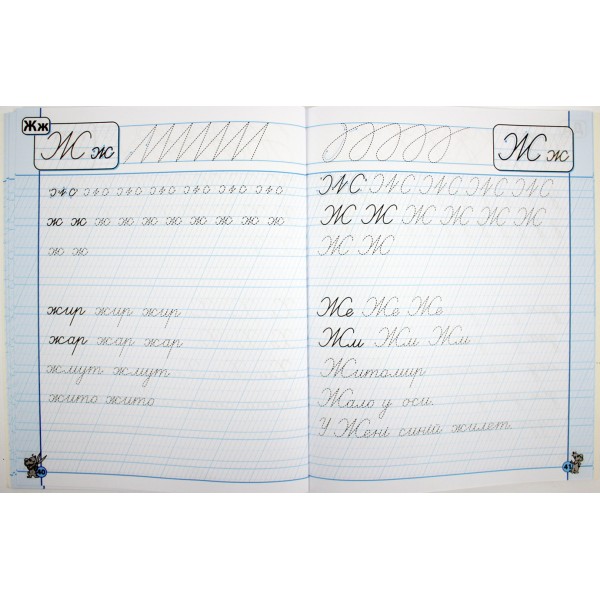 Жж
Ж ж
ж ж ж ж ж ж ж ж ж ж ж
ж ж
жир жир жир
жар жар жар
жмут жмут
жито жито
40
Ж ж
Ж Ж Ж Ж Ж Ж
Ж Ж
Же Же Же
Жм Жм Жм
Житомир
Жало у оси.
У Жені синій жилет.
41